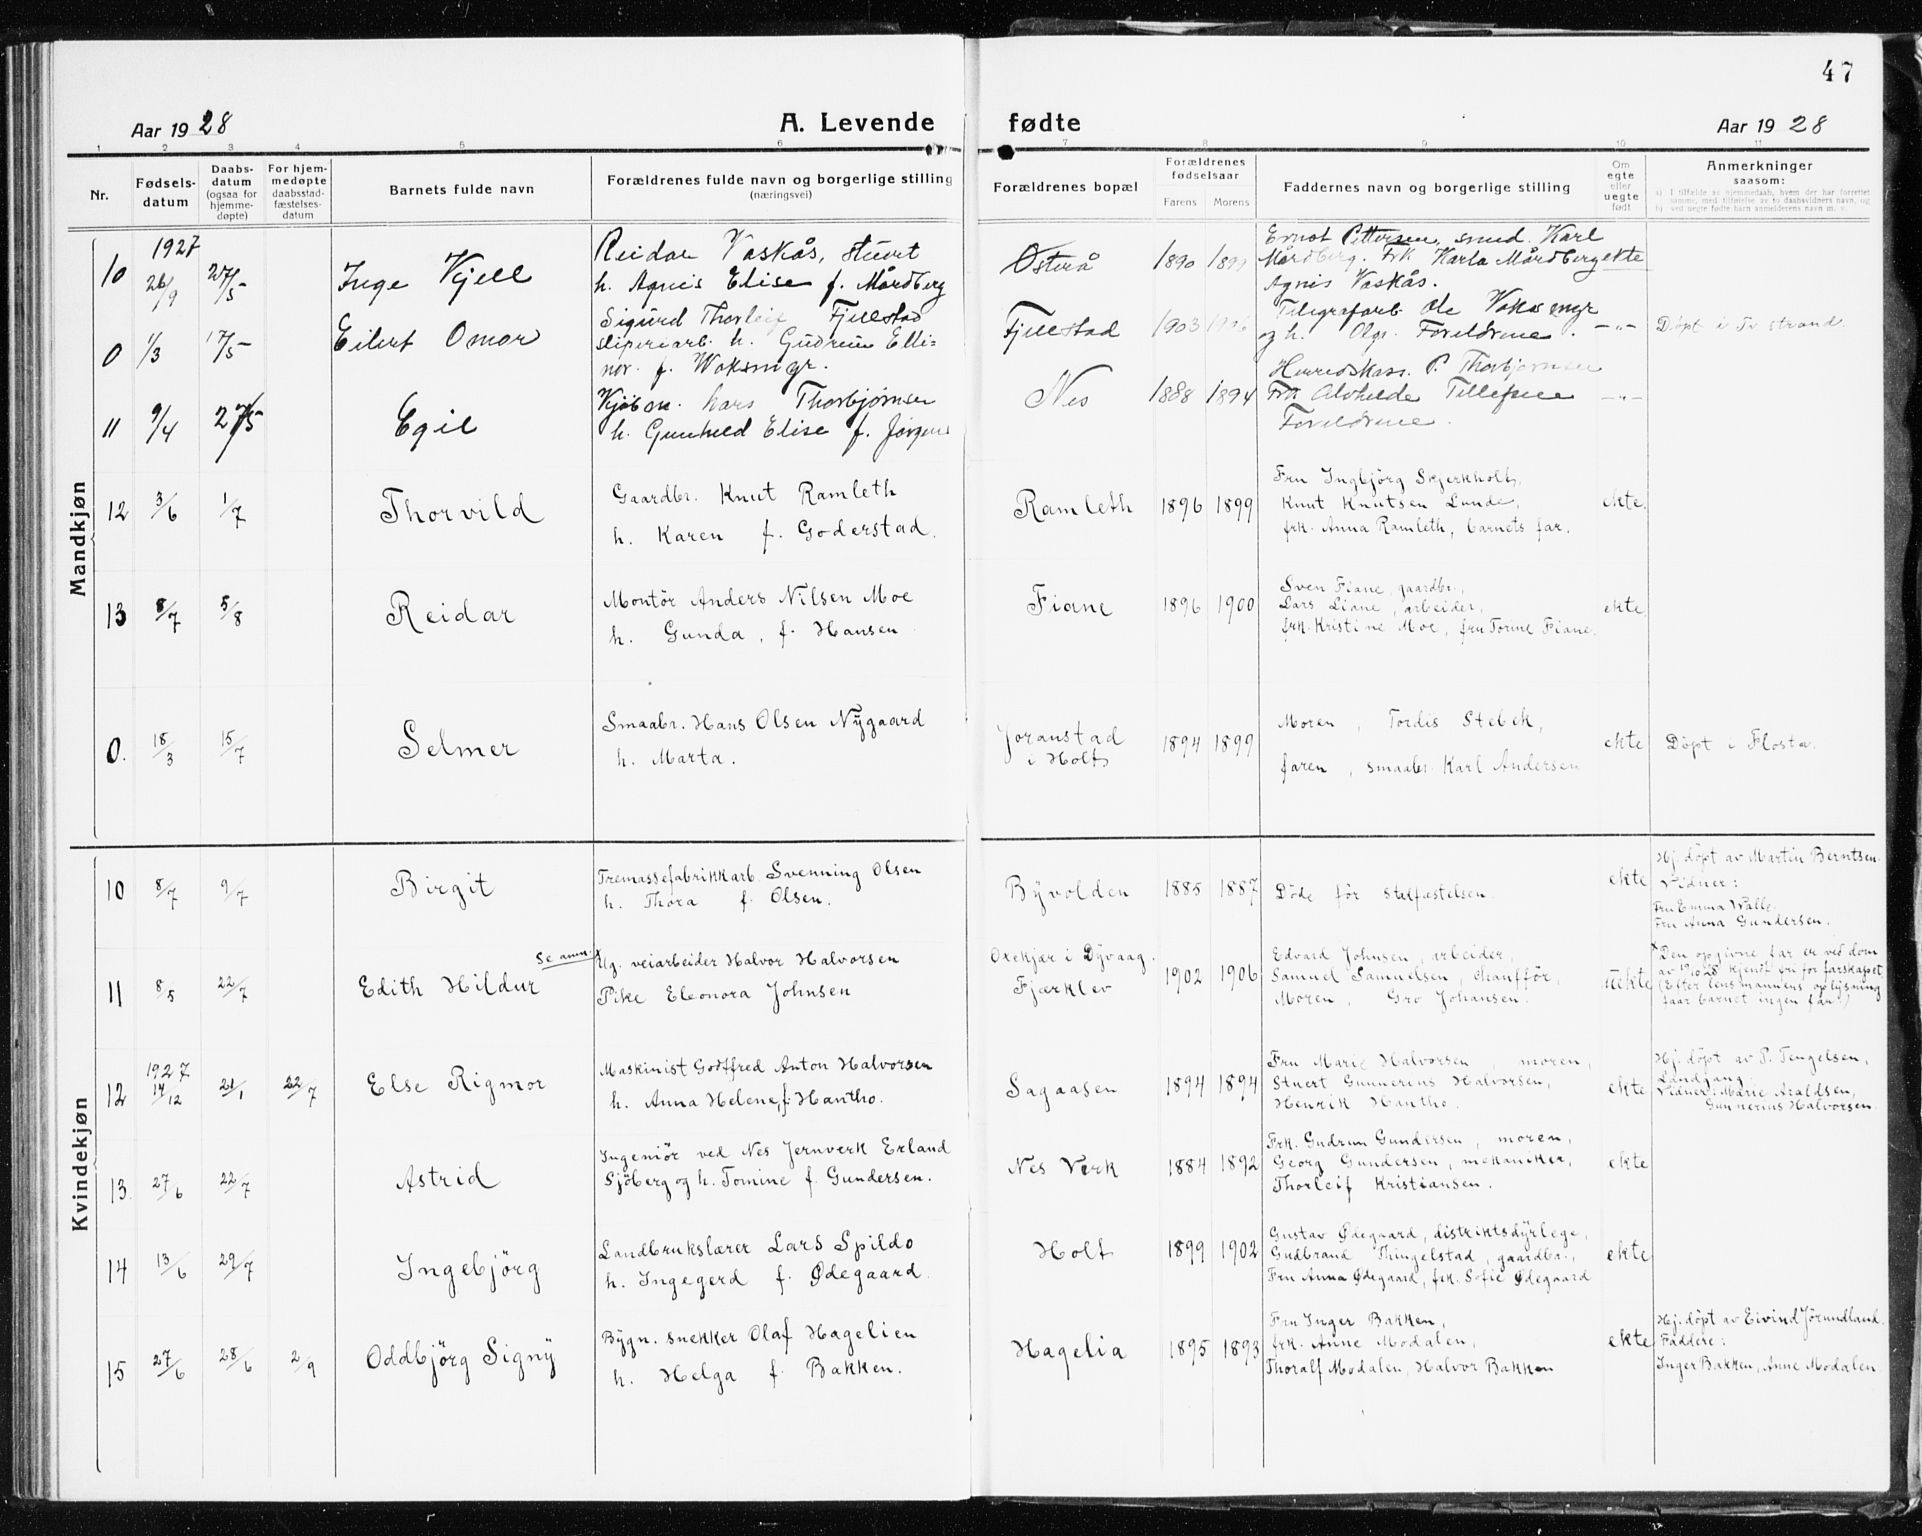 47
Aar 1928
A. Levende fødte
Aar 1928
1 2 3 4 5 6 7 8 9 10 11
Nr.
Fødsels-
datum
Daabs-
datum
(ogsaa for
hjemme-
døpte)
For hjem-
medøpte
daabsstad-
fæstelses-
datum
Barnets fulde navn
Forældrenes fulde navn og borgerlige stilling
(næringsvei)
Forældrenes bopæl
Forældrenes
fødselsaar
Farens Morens
Faddernes navn og borgerlige stilling
Om
egte
eller
uegte
født
Anmerkninger
saasom:
a) I tilfælde av hjemmedaab, hvem der har forrettet
samme, med tilføielse av to daabsvidners navn, og
b) ved uegte fødte barn anmelderens navn m. v.
Mandkjøn
10
1927
26/9
27/5
Inge Kjell
Reidar Vaskås, stuert
h. Agnis Elise f. Mårdberg
Østerå
1890
Ernst Pettersen, smed. Karl
Mårdberg. Frk Karla Mårdberg
Agnis Vaskås.
ekte
0
1/3
17/5
Eilert Omar
Sigurd Thorleif Fjellstad
sliperiarb. h. Gudrun Elli=
nor. f. Woksmyr.
Fjellstad
1903
Telegrafarb Ole Voksmyr
og h. Olga. Foreldrene.
-"-
Døpt i Tv.strand.
11
9/4
27/5
Egil
Kjøbm. Lars Thorbjørnsen
h. Gunhild Elise f. Jørgens
Nes
1888 1894
Herredskass. P. Thorbjørnsen
Frk Alvhilde Tellefsen
Foreldrene.
-"-
12
3/6
1/7
Thorvild
Gaardbr. Knut Ramleth
h. Karen f. Goderstad.
Ramleth
1896 1899
Fru Ingbjørg Skjerkholt,
Knut Knutsen Lunde,
frk. Anna Ramleth, barnets far.
ekte.
13
8/7
5/8
Reidar
Montör Anders Nilsen Moe
h. Gunda, f. Hansen.
Fiane
1896 1900
Sven Fiane, gaardbr.,
Lars Liane, arbeider,
frk. Kristine Moe, fru Tomine Fiane.
ekte.
0.
18/3
15/7
Selmer
Smaabr. Hans Olsen Nÿgaard
h. Marta.
Joranstad
i Holt
1894 1899
Moren, Tordis Stebek,
faren, smaabr. Karl Andersen
ekte
Döpt i Flosta.
Kvindekjøn
10
8/7
9/7
Birgit
Tremassefabrikkarb. Svenning Olsen
h. Thora f. Olsen.
Bÿvolden
1885 1887
Döde för stadfæstelsen.
ekte
Hj. döpt av Martin Berntsen.
Vidner:
Fru Emma Walle.
Fru Anna Gundersen.
11
8/5
22/7
Edith Hildur
Se anm.
Ug. veiarbeider Halvor Halvorsen
Pike Eleonora Johnsen
Oxekjær i Dÿvaag.
Fjærklev
1902 1906
Edvard Johnsen, arbeider,
Samuel Samuelsen, chaufför,
Moren, Gro Johansen.
uekte
Den opgivne far er ved dom
av 19/10 28 kjendt fri for farskapet
(Efter lensmannens oplÿsning
faar barnet ingen far.)
12
1927
17/12
21/1
22/7
Else Rigmor
Maskinist Godtfred Anton Halvorsen
h. Anna Helene, f. Hantho.
Sagaasen
1894 1894
Fru Marie Halvorsen moren,
Stuert Gunnerius Halvorsen,
Henrik Hantho.
ekte
Hj. döpt av P. Tengelsen,
Landgang.
Vidner: Marie Araldsen,
Gunnerius Halvorsen.
13.
27/6
22/7
Astrid
Ingeniör ved Nes Jernverk Erland
Sjöberg og h. Tomine f. Gundersen.
Nes Verk
1884 1892
Frk. Gudrun Gundersen, moren,
Georg Gundersen, mekaniker,
Thorleif Kristiansen.
ekte
14
13/6
29/7
Ingebjörg
Landbrukslærer Lars Spildo
h. Ingegerd f. Ødegaard.
Holt
1899 1902
Gustav Ødegaard, distriktsdÿrlege,
Gudbrand Thingelstad, gaardbr.,
Fru Anna Ødegaard, frk. Sofie Ødegaard
ekte
15
27/6
28/6
2/9
Oddbjörg Signÿ
Bÿgn. snekker Olaf Hagelien
h. Helga f. Bakken.
Hagelia
1895 1893
Fru Inger Bakken,
frk. Anne Modalen,
Thoralf Modalen, Halvor Bakken
ekte
Hj. döpt av Eivind Jörundland.
Faddere:
Inger Bakken, Anne Modalen